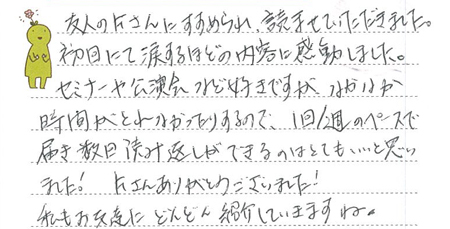 友人のKさんにすすめられ、読ませていただきました。
初回にて涙するほどの内容に感動しました。
セミナーや公演会など好きですが、なかなか
時間がとれなかったりするので、1回/週のペースで
届き数回読み返しができるのはとてもいいと思い
ました! Kさんありがとうございました!
私もお友達にどんどん紹介していきますね。